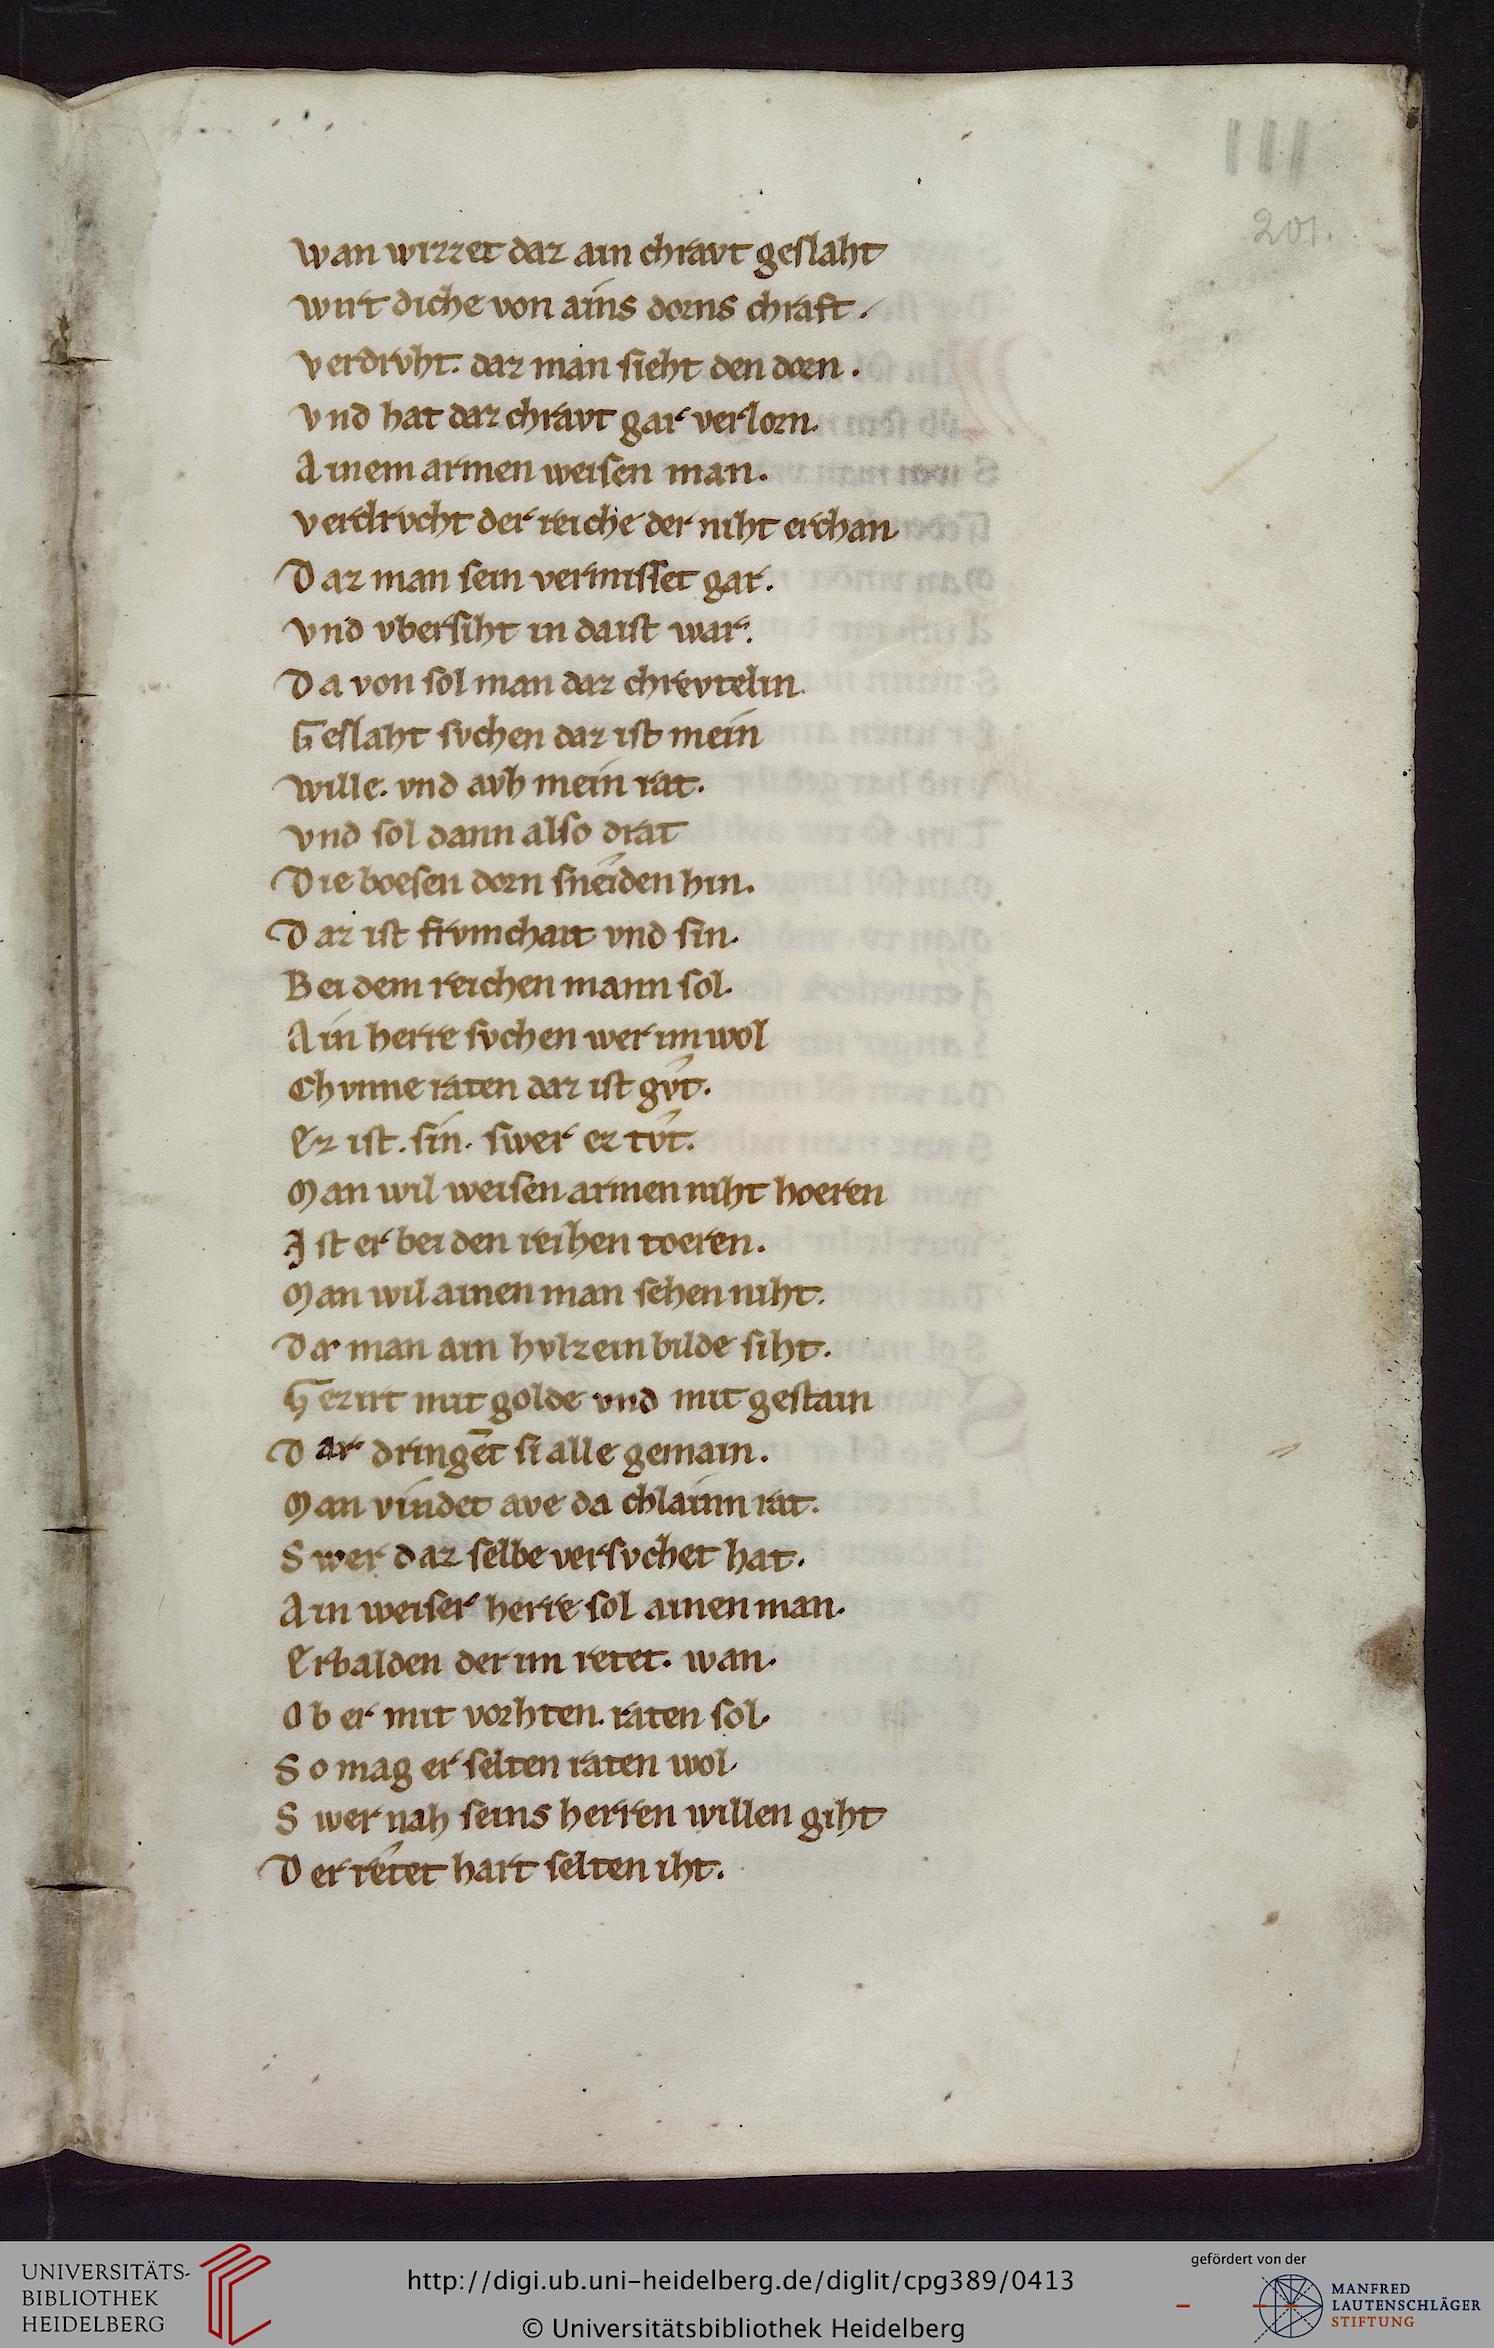 111
201.
Wan wizzet daz ain chravt geslaht
Wirt diche von ains dorns chraft.
Verdrvht. daz man sieht den dorn.
Vnd hat daz chravt gar verlorn.
Ainem armen weisen man.
Verdrvcht der reiche der niht erchan
Daz man sein vermisset gar.
Vnd vbersiht in daist war.
Da von sol man daz chrevtelin
Geslaht svchen daz ist mein
Wille. vnd avh mein rat.
Vnd sol dann also drat
Die boesen dorn sneiden hin.
Daz ist frvmchait vnd sin.
Bei dem reichen mann sol.
Ain herre svchen wer im wol
Chvnne raten daz ist gvt.
Ez ist. sin. swer ez tvt.
Man wil weisen armen niht hoeren
Ist er bei den reihen toeren.
Man wil ainen man sehen niht.
Da man ain hvlzein bilde siht.
Gezirt mit golde vnd mit gestain
Dar dringēt si alle gemain.
Man vindet ave da chlainn rat.
Swer daz selbe versvchet hat.
Ain weiser herre sol ainen man.
Erbalden der im retet. wan.
Ob er mit vorhten. raten sol.
So mag er selten raten wol.
Swer nah seins herren willen giht
Der retet hart selten iht.
UNIVERSITÄTS-
BIBLIOTHEK
HEIDELBERG
http://digi.ub.uni-heidelberg.de/diglit/cpg389/0413
© Universitätsbibliothek Heidelberg
gefördert von der
MANFRED
LAUTENSCHLÄGER
STIFTUNG